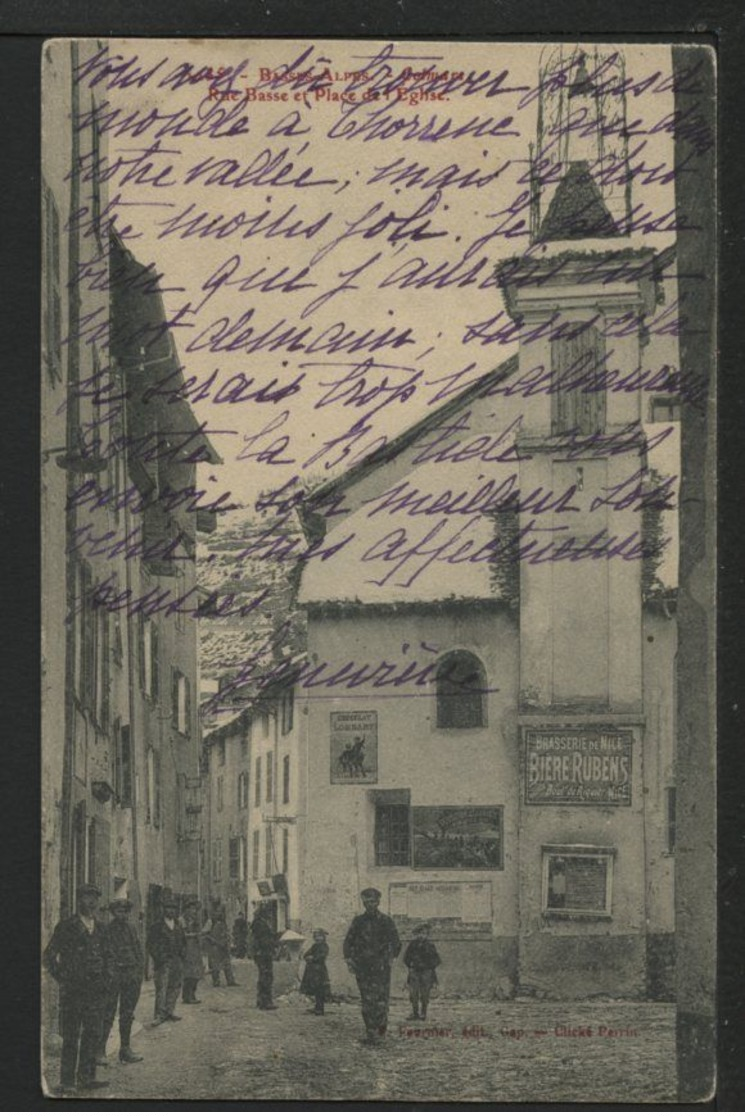 - BASSES-ALPES. -
Rue Basse et Place de l'Eglise.
Vous avez dû trouver plus de
monde à Thorrenc que dans
notre vallée; mais ce doit
être moins joli. Je pense
bien que j'aurai un
mot demain; sans cela
je serais trop malheureuse
Toute la Bastide vous
envoie son meilleur sou-
venir, mes affectueuses
pensées
Geneviève
CHOCOLAT
LOMBART
BRASSERIE DE NICE
BIERE RUBENS
Boul. de Riquier NICE
Fournier, édit., Gap. — Cliché Perrin